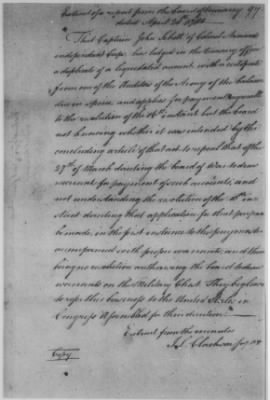 Extract of a report from the Board of Treasury 477
dated April 20 1782
"That Captain John Schott of Colonel Armands
independent Corps has lodged in the Treasury Office
a duplicate of a liquidated account with a certificate
from one of the Auditors of the Army of the balance
due in specie and applies for payment
to the resolution of the 12th instant but the board
not knowing whether it was intended by the
concluding article of that act to repeal that of the
27th of March directing the board of War to draw
warrants for payment of such accounts, and
not understanding the resolution of the
directing that application for that purpose
be made, in the first instance to the paymaster
accompanied with proper warrants and there
being no resolution authorising the board to draw
warrants on the Military Chest. They beg leave
to refer this business to the United States in
Congress Assembled for their direction."
Extract from the minutes
Copy